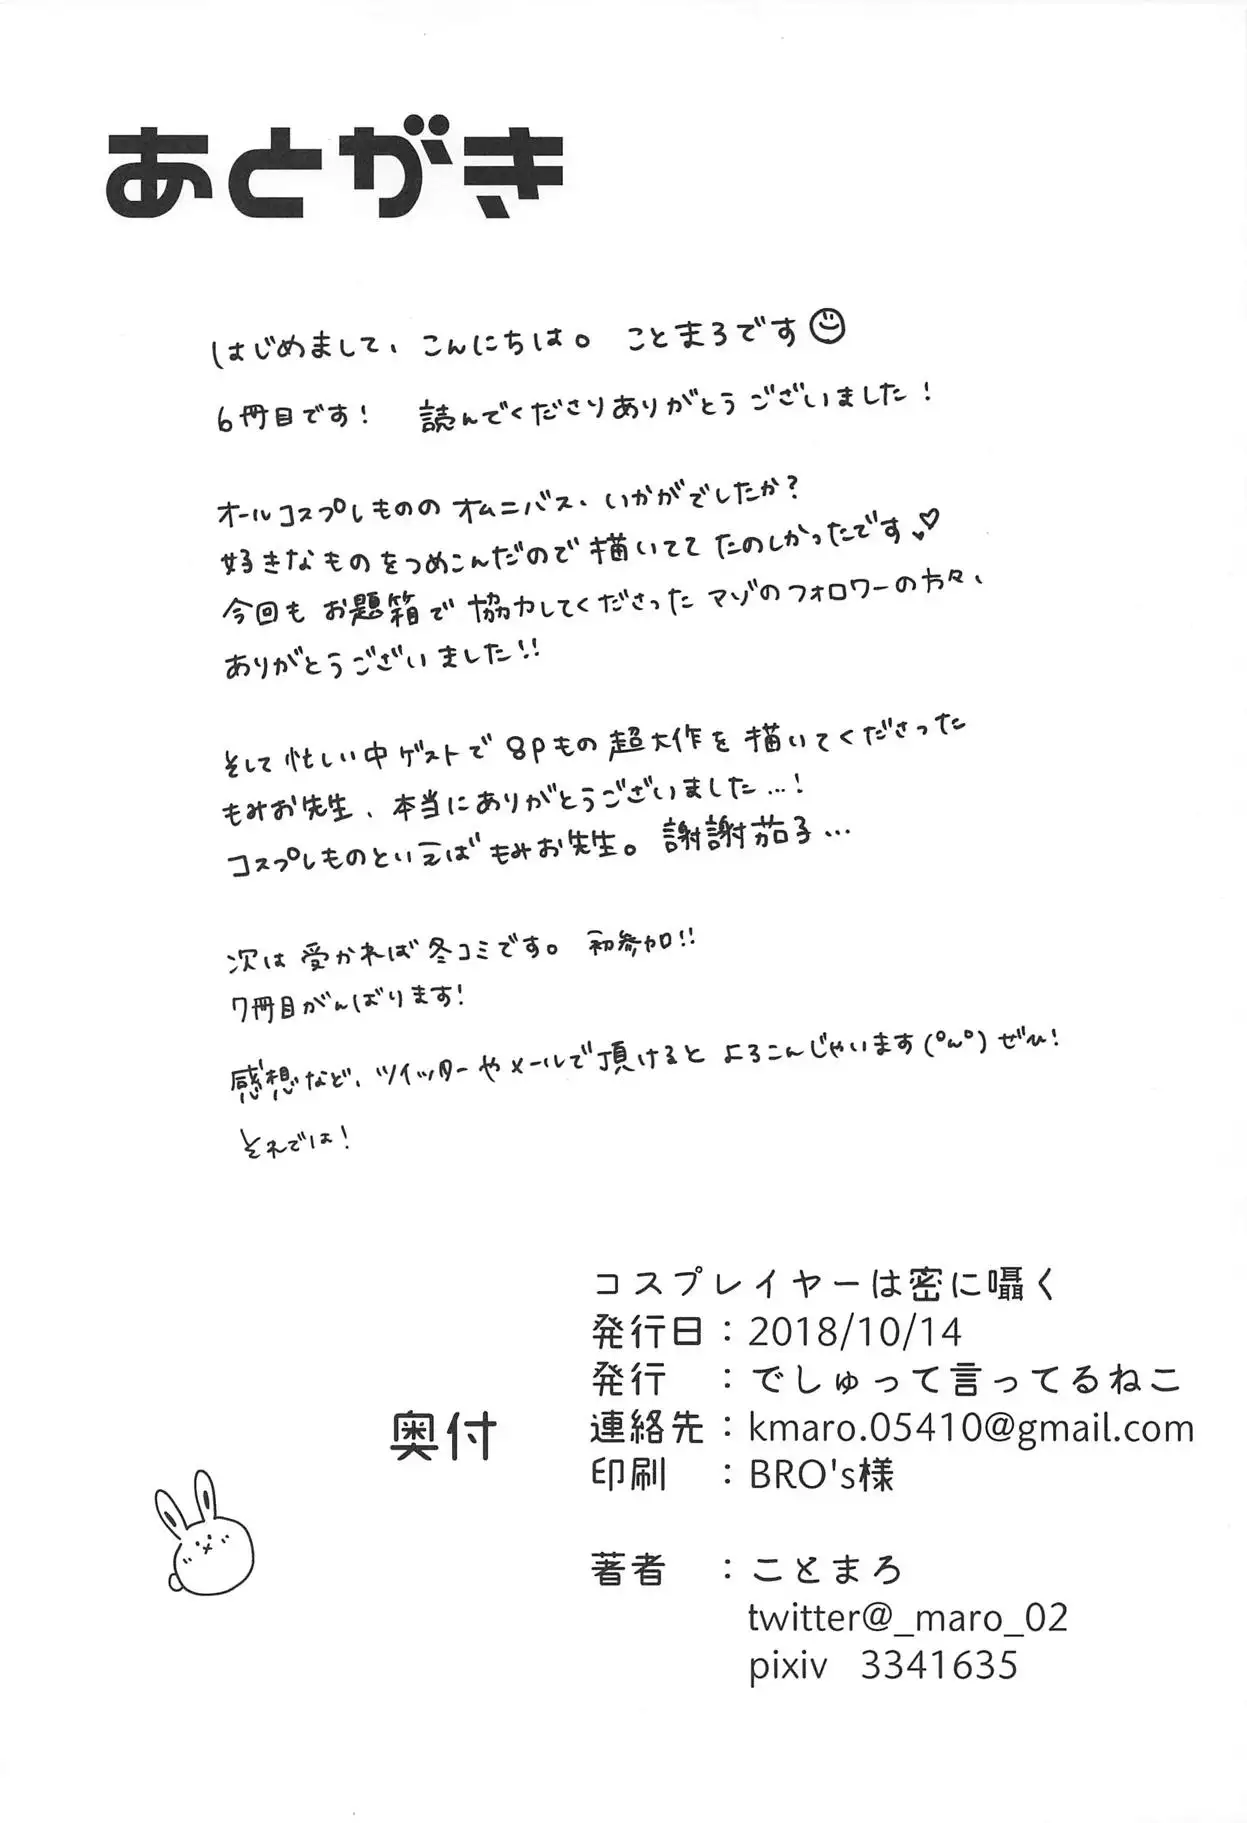 あとがき
はじめまして、こんにちは。 ことまろです
6冊目です! 読んでくださりありがとうございました!
オールコスプレもののオムニバス、いかがでしたか?
好きなものをつめこんだので描いててたのしかったです♡
今回もお題箱で協力してくださったマゾのフォロワーの方々、
ありがとうございました!!
そして忙しい中ゲストで8Pもの超大作を描いてくださった
もみお先生、本当にありがとうございました…!
コスプレものといえばもみお先生。謝謝茄子…
次は受かれば冬コミです。 初参加!!
7冊目がんばります!
感想など、ツイッターやメールで頂けるとよろこんじゃいます(°ω°)ぜひ!
それでは!
奥付
コスプレイヤーは密に囁く
発行日:2018/10/14
発行 :でしゅって言ってるねこ
連絡先:kmaro.05410@gmail.com
印刷 :BRO's様
著者 :ことまろ
twitter@_maro_02
pixiv 3341635